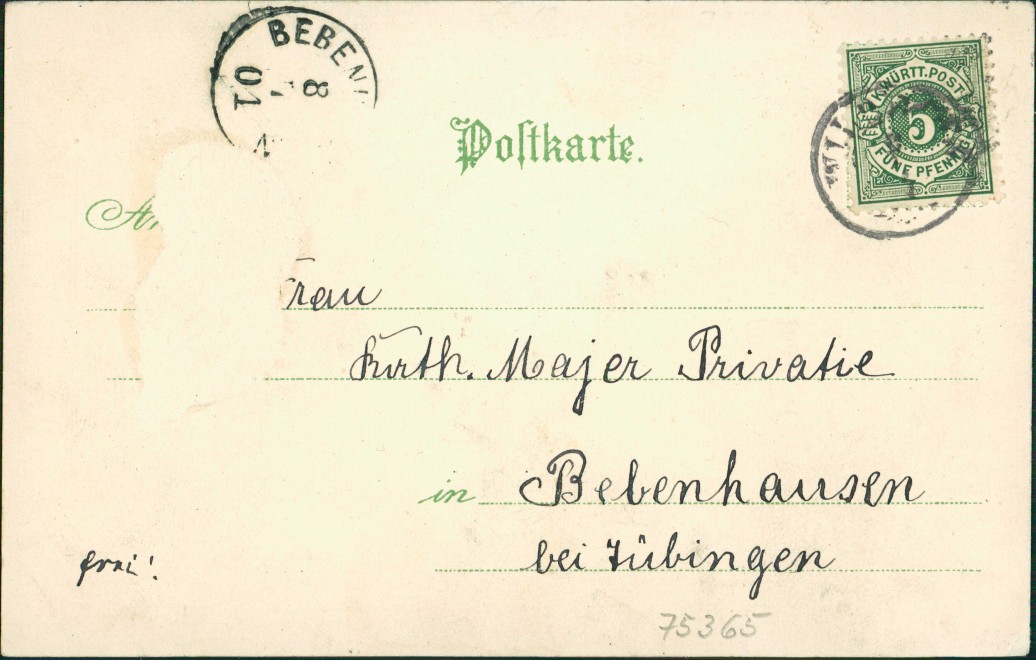 BEBEN
8
01
Postkarte.
K.WÜRTT.POST
5
FÜNF PFENNIG
Frau
Kath. Majer Privatie
in Bebenhausen
bei Tübingen
frei!
75365